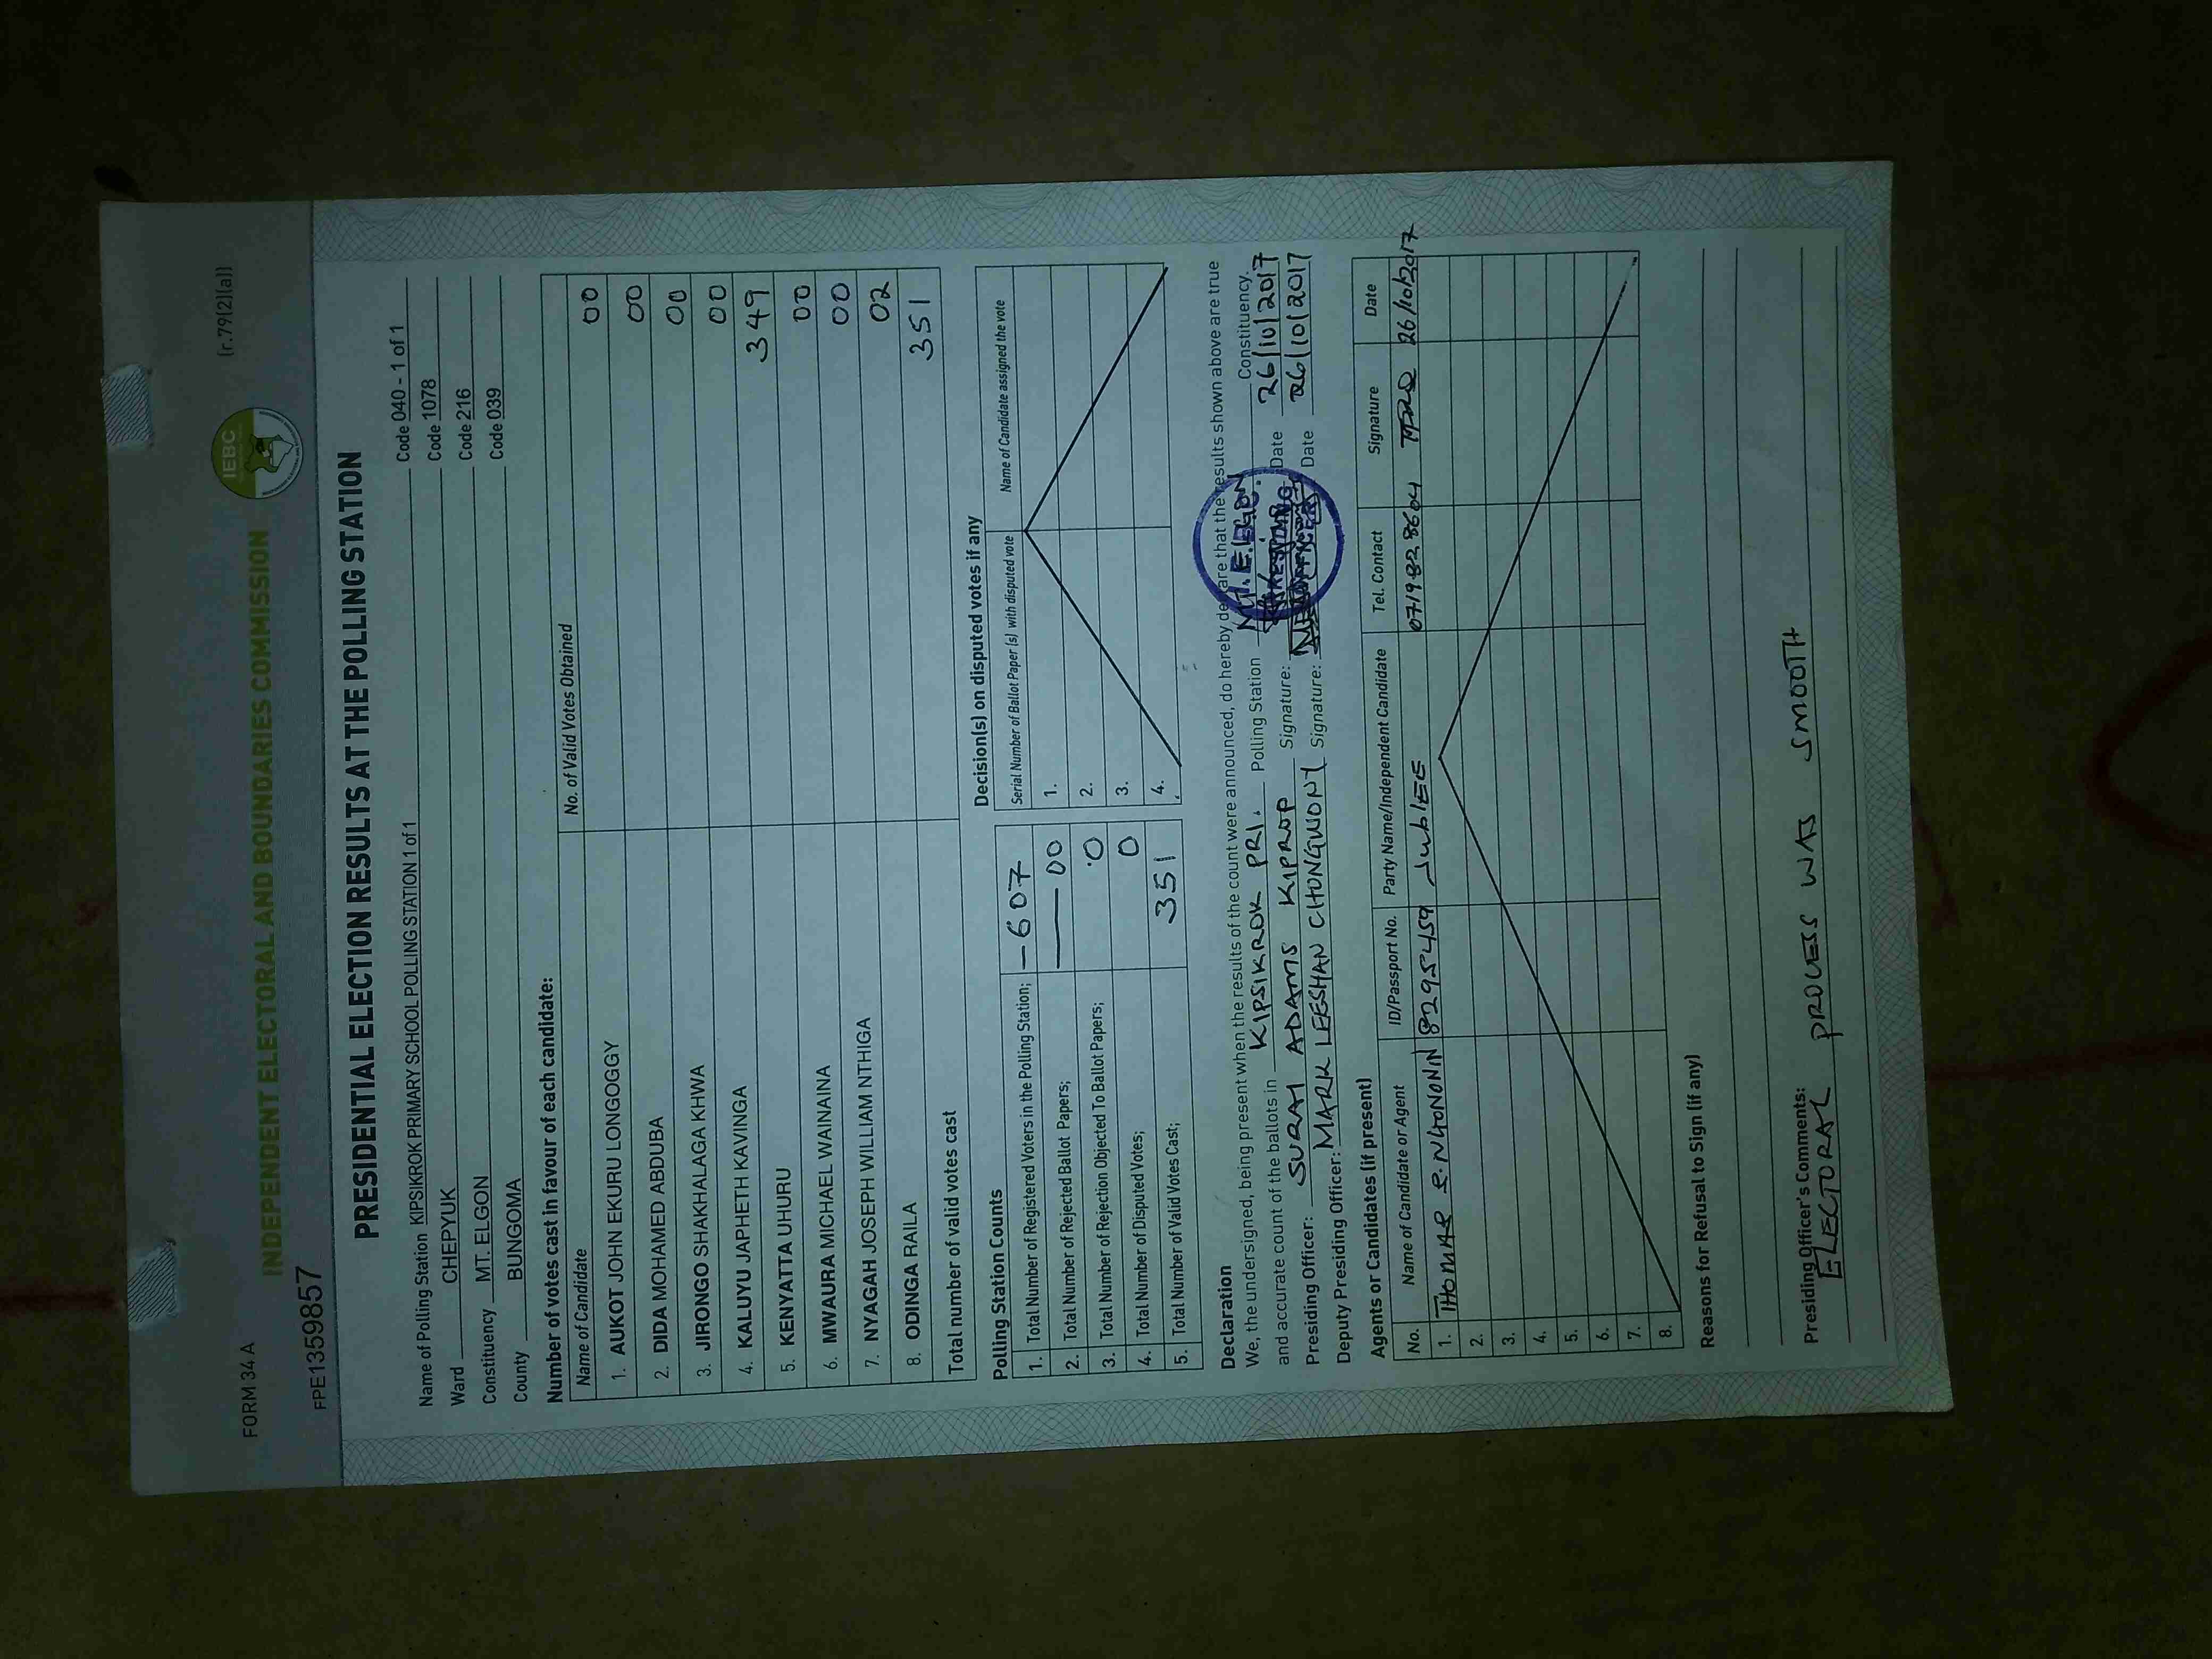 FORM 34 A
(r.79(2)(a))
IEBC
INDEPENDENT ELECTORAL AND BOUNDARIES COMMISSION
FPE1359857
PRESIDENTIAL ELECTION RESULTS AT THE POLLING STATION
Name of Polling Station KIPSIKROK PRIMARY SCHOOL POLLING STATION 1 of 1 Code 040 - 1 of 1
Ward CHEPYUK Code 1078
Constituency MT. ELGON Code 216
County BUNGOMA Code 039
Number of votes cast in favour of each candidate:
Name of Candidate No. of Valid Votes Obtained
1. AUKOT JOHN EKURU LONGOGGY 00
2. DIDA MOHAMED ABDUBA 00
3. JIRONGO SHAKHALAGA KHWA 00
4. KALUYU JAPHETH KAVINGA 00
5. KENYATTA UHURU 349
6. MWAURA MICHAEL WAINAINA 00
7. NYAGAH JOSEPH WILLIAM NTHIGA 00
8. ODINGA RAILA 02
Total number of valid votes cast 351
Polling Station Counts
1. Total Number of Registered Voters in the Polling Station; 607
2. Total Number of Rejected Ballot Papers; 00
3. Total Number of Rejection Objected To Ballot Papers; 0
4. Total Number of Disputed Votes; 0
5. Total Number of Valid Votes Cast; 351
Decision(s) on disputed votes if any
Serial Number of Ballot Paper (s) with disputed vote Name of Candidate assigned the vote
1.
2.
3.
4.
Declaration
We, the undersigned, being present when the results of the count were announced, do hereby declare that the results shown above are true
and accurate count of the ballots in KIPSIKROK PRI. Polling Station MT. ELGON Constituency.
Presiding Officer: SURAY ADAMS KIPROP Signature: Date 26/10/2017
Deputy Presiding Officer: MARK LEESHAN CHONGWONY Signature: Date 26/10/2017
Agents or Candidates (if present)
No. Name of Candidate or Agent ID/Passport No. Party Name/Independent Candidate Tel. Contact Signature Date
1. THOMAS 8295459 JubLEE 26/10/2017
2.
3.
4.
5.
6.
7.
8.
Reasons for Refusal to Sign (if any)
Presiding Officer's Comments:
ELECTORAL PROCESS WAS SMOOTH